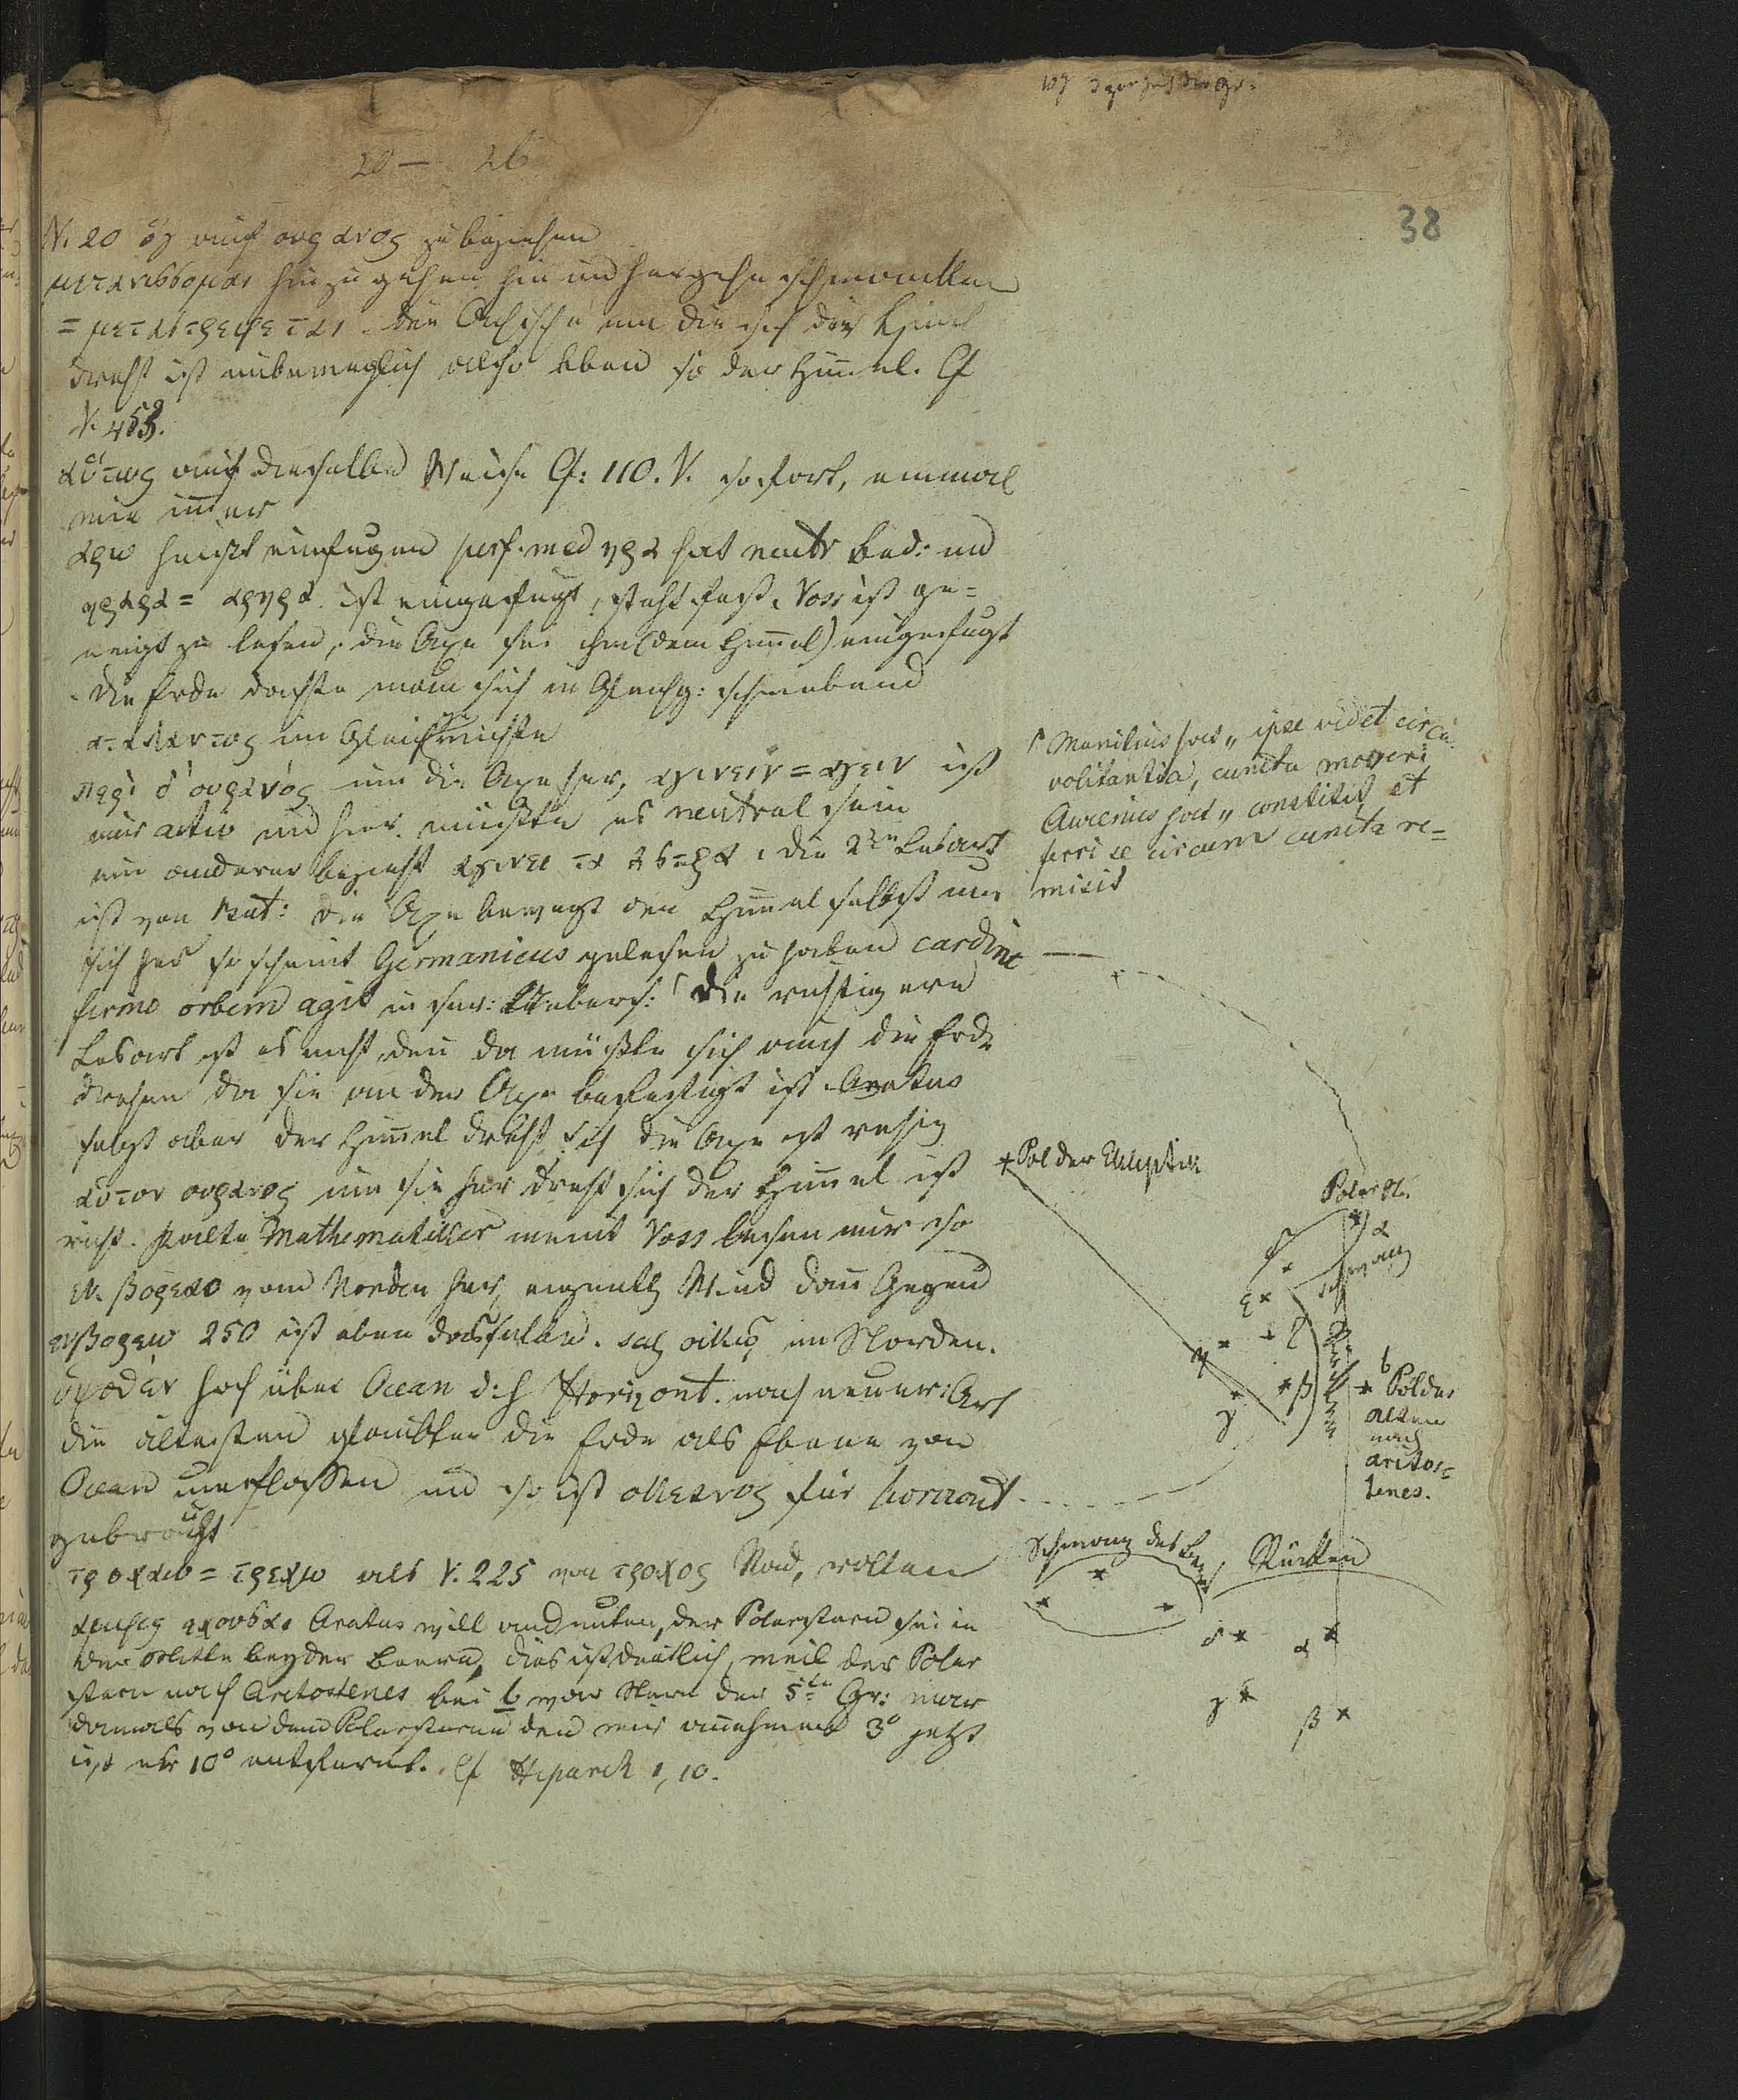 20 — 26
38
V. 20 ὃς auf ουρανος zu beziehen
μετανισσομαι hinzu gehen hin und hergehn schwanken
= μεταστρεφεται. Die Achse um die sich der Himel
dreht ist unbeweglich also eben so der Him̄el. Cf
V. 453.
αὕτως auf dieselbe Weise Cf: 110. V. so fort, einmal
wie im̄er
αρω heißt einfugen perf. med ηρα hat neutr Bed: und
ηραρα = αρηρα. ist eingefugt, steht fest. Voss ist ge=
neigt zu lesen, die Axe sei ihm (dem Him̄el) eingefugt
die Erde dachte man sich in Gleichg: schwebend
αταλαντος im Gleichgewichte
περὶ δ' ουρανός um die Axe her, αγινειν = αγειν ist
nur activ und hier müßte es neutral sein
ein anderer bezieht αγινει τα αστρα. die 2te Lesart
ist von Mat: die Axe bewegt den Him̄el selbst um
sich her so scheint Germanicus gelesen zu haben cardine
firmo orbem agit in sr: Uebers: Γ die richtigere
Lesart ist es nicht, den̄ da müßte sich auch die Erde
drehen da sie an der Axe befestigt ist. Aratus
sagt aber der Him̄el dreht sich die Axe ist ruhig
αὐτον ουρανος um sie her dreht sich der Him̄el ist
richt. Mathematiker meint Voss lesen nur so
εκ βορεαο vom Norden her, eigentlich Wind dan̄ Gegend
εν βορεω 250 ist eben dasselbe. im Norden.
ὑψόθεν hoch über Ocean d: h Horizont. nach neuer: Art
die ältesten glaubten die Erde als Ebene von
Ocean umflossen und so ist ωκεανος für horizont
gebraucht
τροχαω = τρεχω als V. 225 von τροχος Rad, rollen
αμφις εχουσαι Aratus will andeuten, der Polarstern sei in
der Mitte beyder Baeren, dies ist deutlich, weil der Polar
stern nach Aratostenes bei b von Stern der 5ten Gr: war
damals von dem Polarsterne den wir an̄ehmen 3° jetzt
ist er 10° entfernt. Cf Hiparch 1, 10.
Γ Manilius hat „ ipse videt circu̅
volitantia, cuncta moveri
Avienus hat „ constitit et
ferri se circum cuncta re=
misit
Pol der Ekliptik
Polarst.
α
δ
Schwanz
ε
ζ
η
β
γ
b
Pol der
alten
nach
aratos=
tenes.
Schwanz des
Rücken
δ
α
γ
β